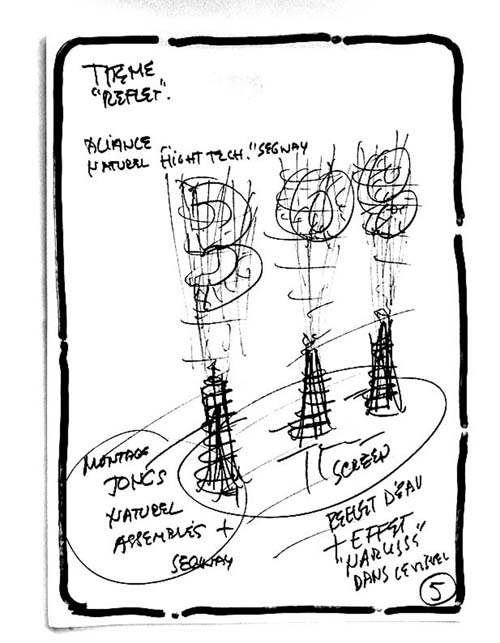 THEME
"REFLET".
ALIANCE
NATUREL HIGHT TECH. "SEGWAY
3 6 8
MONTAGE
JONCS
NATUREL
ASSEMBLÉS +
SEGWAY
SCREEN
REFLET D'EAU
+ EFFET
"NARCISSE"
DANS
5